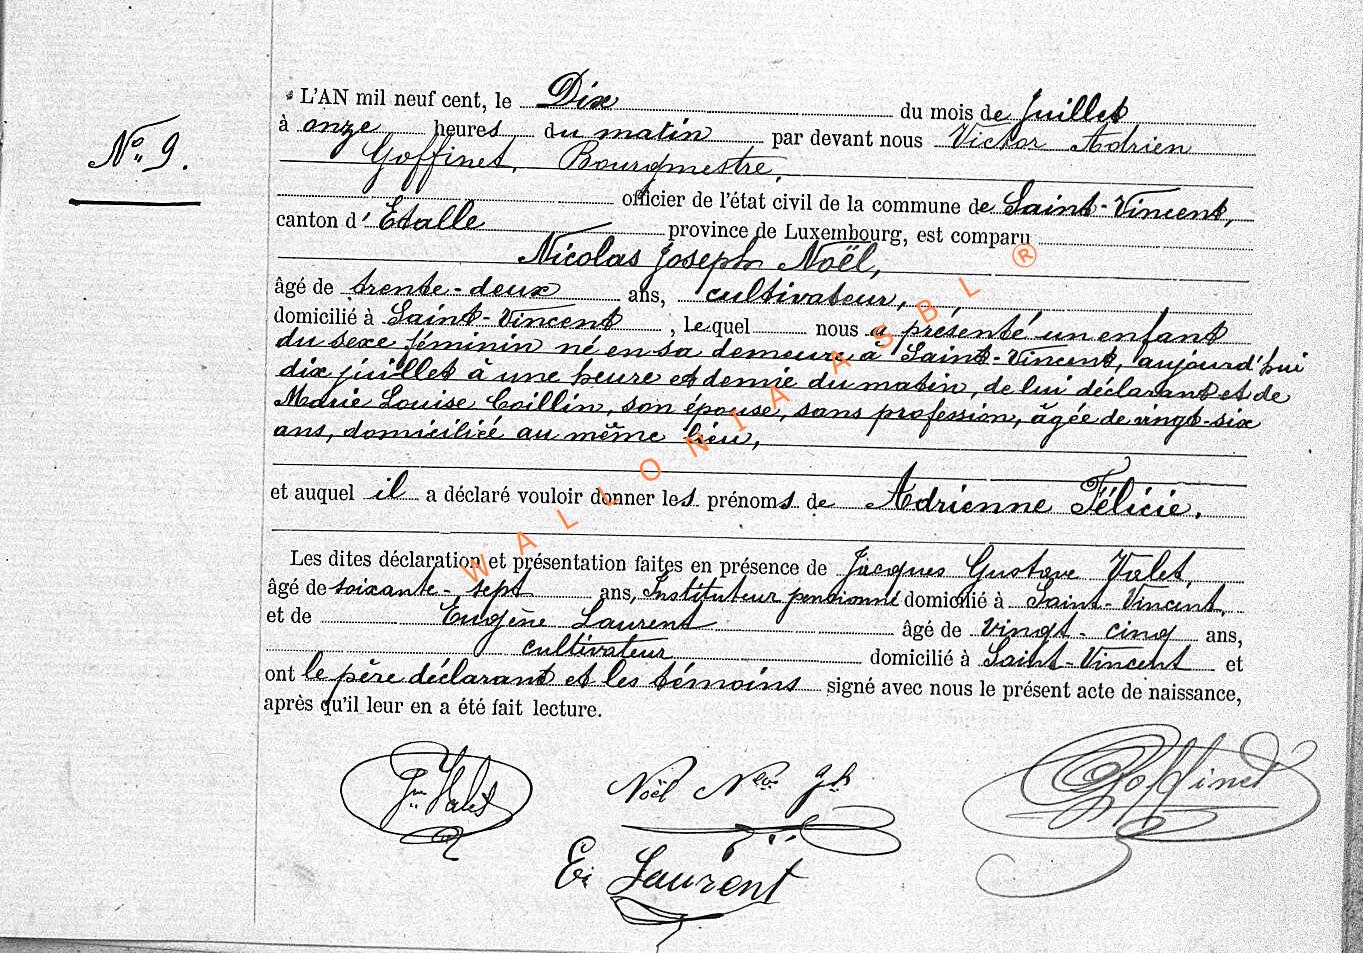 L'AN mil neuf cent, le Dix du mois de Juillet
N° 9.
à onze heures du matin par devant nous Victor Adrien
Goffinet, Bourgmestre,
officier de l'état civil de la commune de Saint-Vincent,
canton d'Etalle province de Luxembourg, est comparu
Nicolas Joseph Noël,
âgé de trente-deux ans, cultivateur,
domicilié à Saint-Vincent, lequel nous a présenté un enfant
du sexe féminin né en sa demeure à Saint-Vincent, aujourd'hui
dix juillet à une heure et demie du matin, de lui déclarant et de
Marie Louise Coillin, son épouse, sans profession, âgée de vingt-six
ans, domiciliée au même lieu,
et auquel il a déclaré vouloir donner les prénoms de Adrienne Félicie.
Les dites déclaration et présentation faites en présence de Jacques Gustave Valet,
âgé de soixante-sept ans, Instituteur pensionné domicilié à Saint-Vincent,
et de Eugène Laurent âgé de vingt-cinq ans,
cultivateur domicilié à Saint-Vincent et
ont le père déclarant et les témoins signé avec nous le présent acte de naissance,
après qu'il leur en a été fait lecture.
Valet
Noël Nas Jh
Goffinet
E. Laurent
WALLONIA ASBL ®